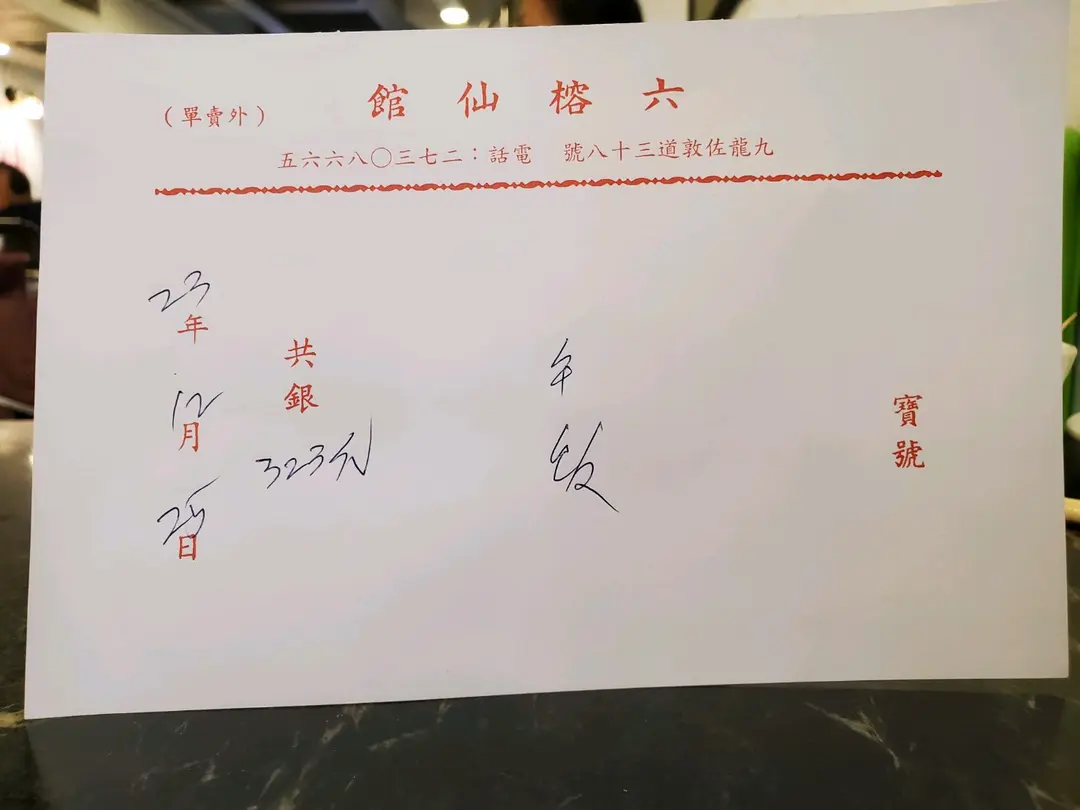 六榕仙館
（外賣單）
九龍佐敦道三十八號 電話：二七三〇八六六五
寶號
午飯
共銀 323元
23年 12月 25日